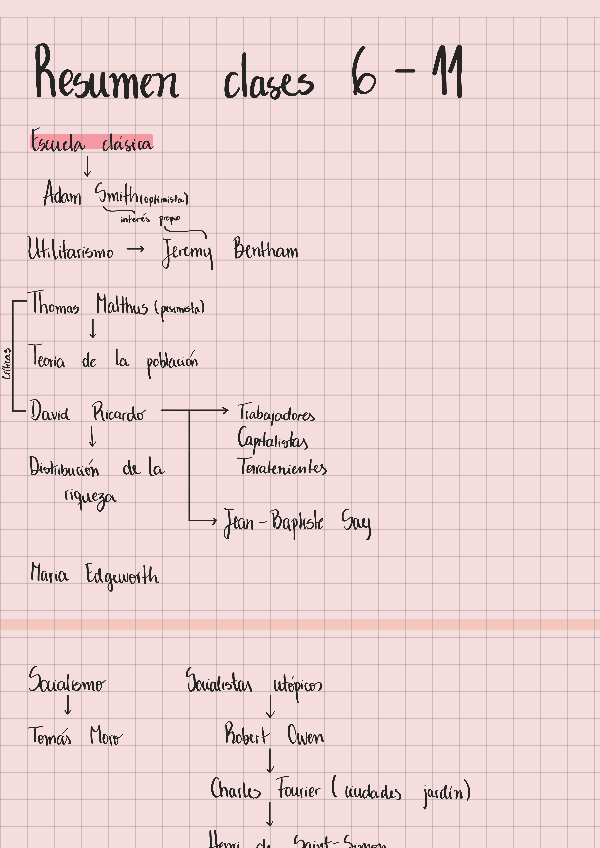 Resumen clases 6 - 11
Escuela clásica
Adam Smith (optimista)
interés propio
Utilitarismo → Jeremy Bentham
Thomas Malthus (pesimista)
Críticas
Teoria de la población
David Ricardo → Trabajadores
Capitalistas
Distribución de la Terratenientes
riqueza
Jean-Baptiste Say
Maria Edgeworth
Socialismo Socialistas utópicos
Tomás Moro Robert Owen
Charles Fourier (ciudades jardín)
Henri de Saint-Simon